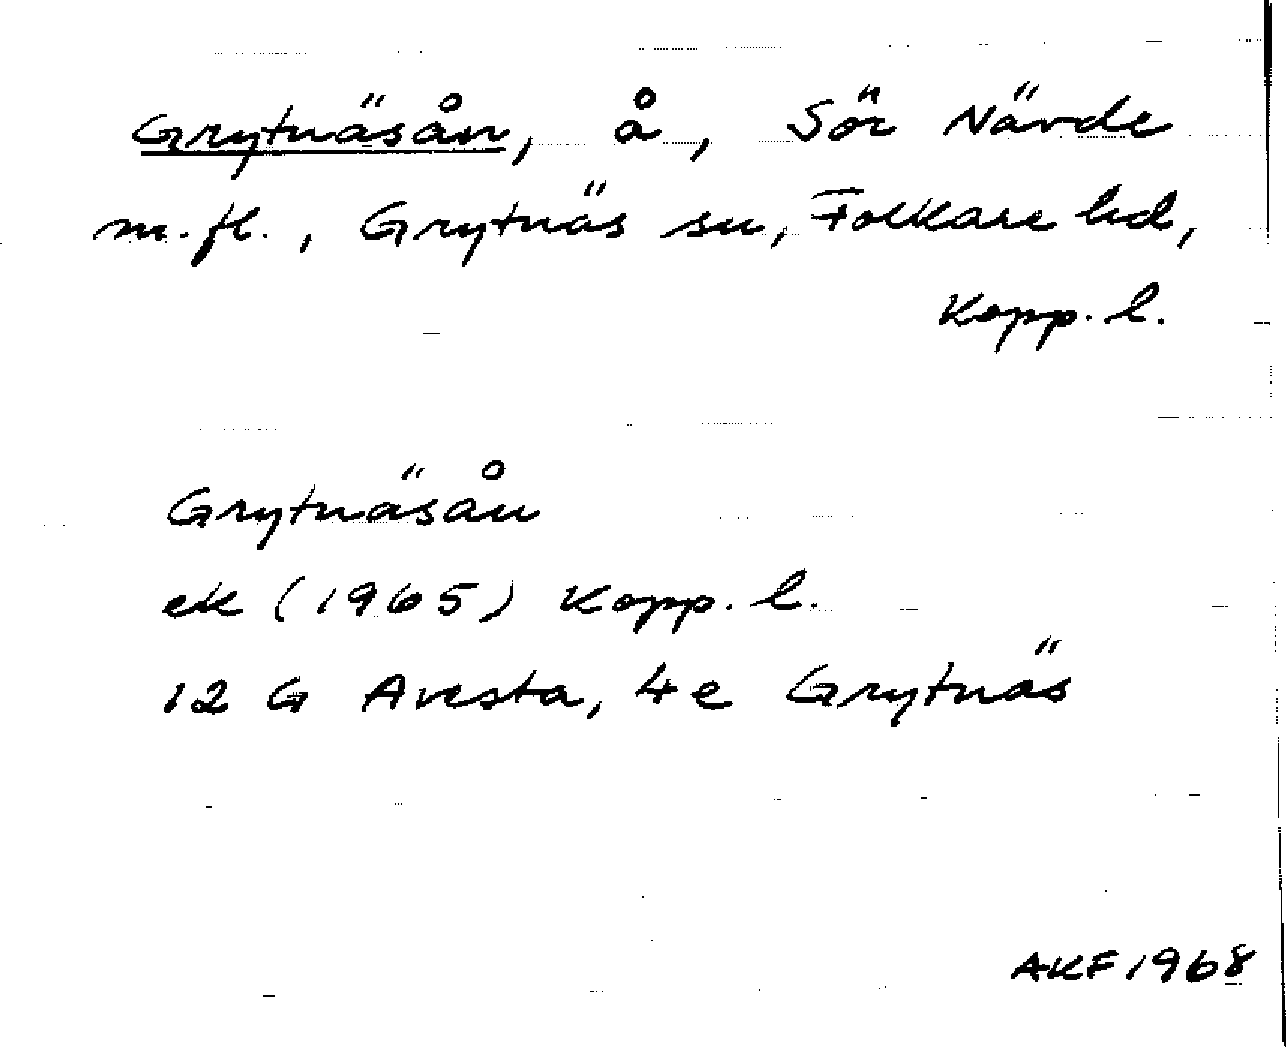 Grytnäsån, å, Sör Närde
m.fl., Grytnäs sn, Folkare hd,
Kopp. l.
Grytnäsån
ek (1965) Kopp. l.
12 G Avesta, 4e Grytnäs
AKF 1968